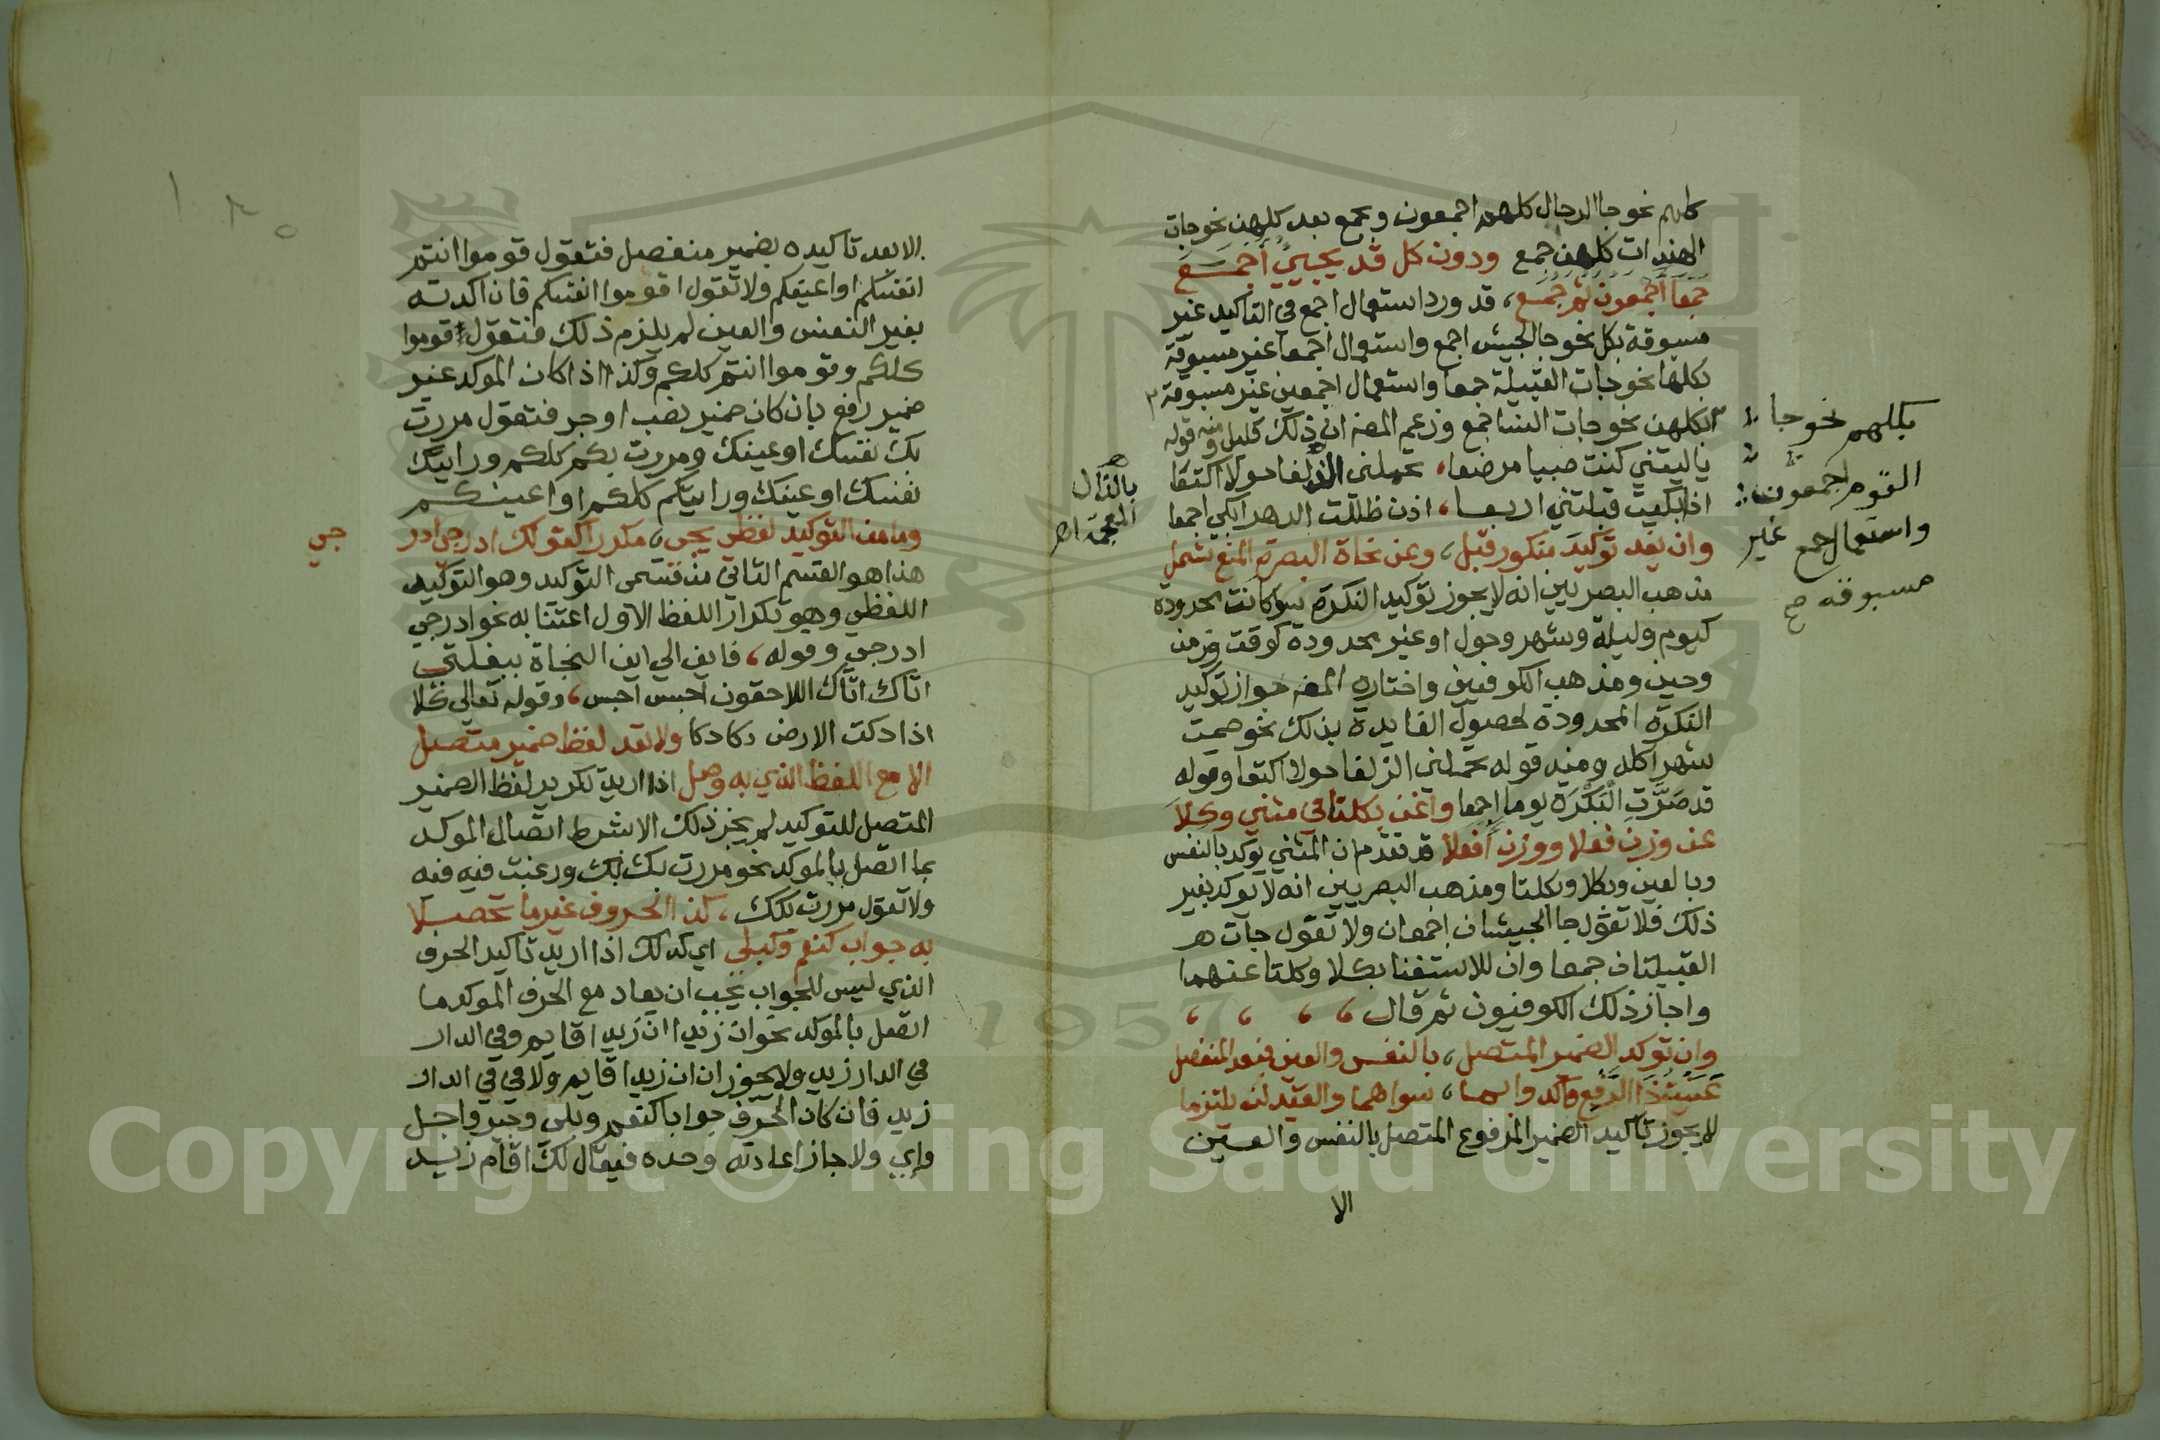 كلهم نحو جا الرجال كلهم اجمعون وبجمع بعد كلهن نحو جات
الهندات كلهن جمع ودون كل قد يجيي اجمع
جمعا اجمعون ثم جمع، قد ورد استعمال اجمع في التاكيد غير
مسبوقة بكل نحو جا الجيش اجمع واستعمال جمعا غير مسبوقة
بكلها نحو جات القبيلة جمعا واستعمال اجمعين غير مسبوقة
بكلهن نحو جات النسا جمع وزعم المصنف ان ذلك قليل ومنه قوله
ياليتني كنت صبيا مرضعا، تحملني الذلفا حولا اكتعا
اذا بكيت قبلتني اربعا، اذن ظللت الدهر ابكي اجمعا
وان يفد توكيد منكور قبل، وعن نحاة البصرة المنع شمل
مذهب البصريين انه لا يجوز توكيد النكرة سوا كانت محدودة
كيوم وليلة وشهر وحول او غير محدودة كوقت وزمن
وحين ومذهب الكوفيين واختاره المصنف جواز توكيد
النكرة المحدودة لحصول الفايدة بذلك نحو صمت
شهرا كله ومنه قوله تحملني الزلفا حولا اكتعا وقوله
قد صرت البكرة يوما اجمعا واغن بكلتا في مثني وكلا
عن وزن فعلا ووزن افعلا قد تقدم ان المثني يوكد بالنفس
وبالعين وبكلا وبكلتا ومذهب البصريين انه لا يوكد بغير
ذلك فلا تقول جا الجيشان اجمعان ولا تقول جات
القبيلتان جمعا وان للاستغنا بكلا وكلتا عنهما
واجاز ذلك الكوفيون ثم قال
وان توكد الضمير المتصل، بالنفس والعين فبعد المنفصل
عنيت ذا الرفع واكدوا بما، سواهما والقيد لن يلتزما
لا يجوز تاكيد الضمير المرفوع المتصل بالنفس والعين
الا
بكلهم نحو جا
القوم اجمعون
واستعمال جمع غير
مسبوقة صح
بالذال
المعجمة اهـ
الا بعد تاكيده بضمير منفصل فتقول قوموا انتم
انفسكم او اعينكم ولا تقول قوموا انفسكم فان اكدته
بغير النفس والعين لم يلزم ذلك فتقول قوموا
كلكم وقوموا انتم كلكم وكذا اذا كان الموكد غير
ضمير رفع بان كان ضمير نصب او جر فتقول مررت
بك نفسك او عينك ومررت بكم كلكم ورايتك
نفسك او عينك ورايتكم كلكم او اعينكم
وما من التوكيد لفظي يجي، مكررا كقولك ادرجي ادر
جي
هذا هو القسم الثاني من قسمي التوكيد وهو التوكيد
اللفظي وهو تكرار اللفظ الاول اعتنا به نحو ادرجي
ادرجي وقوله، فاين الي اين النجاة ببغلتي
اتاك اتاك اللاحقون احبس احبس، وقوله تعالي كلا
اذا دكت الارض دكا دكا ولا تعد لفظ ضمير متصل
الا مع اللفظ الذي به وصل اذا اريد تكرير لفظ الضمير
المتصل للتوكيد لم يجز ذلك الا بشرط اتصال الموكد
بما اتصل بالموكد نحو مررت بك بك ورغبت فيه فيه
ولا تقول مررت بكك، كذا الحروف غير ما تحصلا
به جواب كنعم وكبلي اي كذلك اذا اريد تاكيد الحرف
الذي ليس للجواب يجب ان يعاد مع الحرف الموكد ما
اتصل بالموكد نحو ان زيدا ان زيدا قايم وفي الدار
في الدار زيد ولا يجوز ان ان زيدا قايم ولا في في الدار
زيد فان كان الحرف جوابا كنعم وبلي وجير واجل
واي ولا جاز اعادته وحده فيقال لك اقام زيد
Copyright © King Saud University
1957